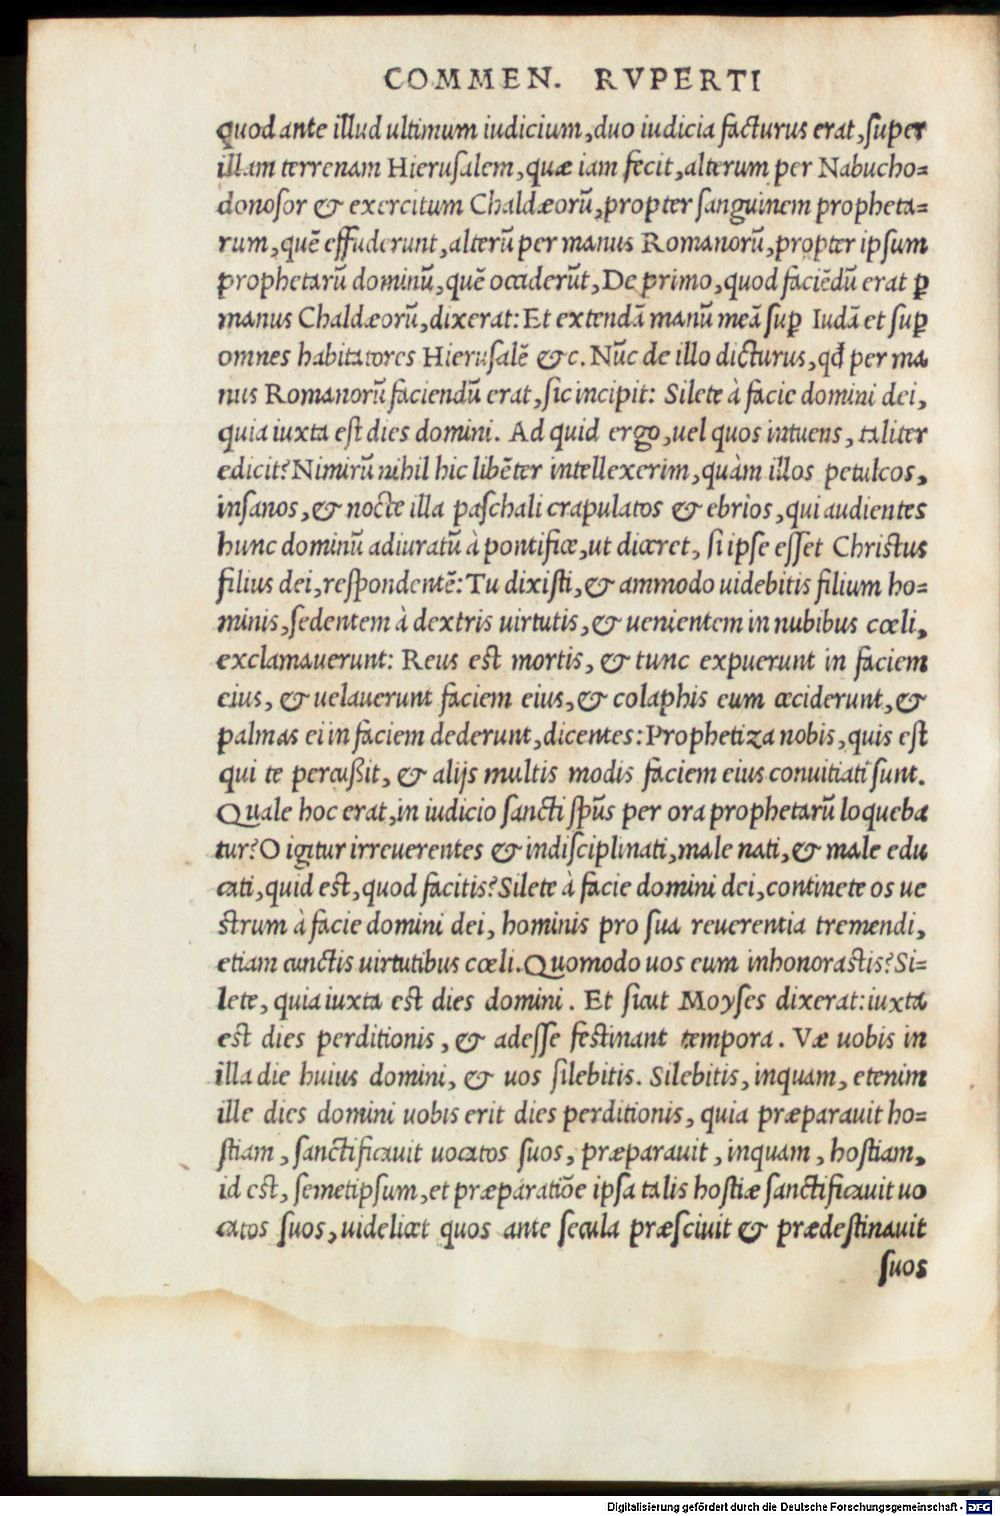 COMMEN. RVPERTI
quod ante illud ultimum iudicium, duo iudicia facturus erat, super
illam terrenam Hierusalem, quæ iam fecit, alterum per Nabucho=
donosor & exercitum Chaldæorũ, propter sanguinem propheta=
rum, quẽ effuderunt, alterũ per manus Romanorũ, propter ipsum
prophetarũ dominũ, quẽ occiderũt, De primo, quod faciẽdũ erat ꝑ
manus Chaldæorũ, dixerat: Et extendã manũ meã suꝑ Iudã et suꝑ
omnes habitatores Hierusalẽ &c. Nũc de illo dicturus, qđ per ma
nus Romanorũ faciendũ erat, sic incipit: Silete à facie domini dei,
quia iuxta est dies domini. Ad quid ergo, uel quos intuens, taliter
edicit? Nimirũ nihil hic libẽter intellexerim, quàm illos petulcos,
insanos, & nocte illa paschali crapulatos & ebrios, qui audientes
hunc dominũ adiuratũ à pontifice, ut diceret, si ipse esset Christus
filius dei, respondentẽ: Tu dixisti, & ammodo uidebitis filium ho=
minis, sedentem à dextris uirtutis, & uenientem in nubibus cœli,
exclamauerunt: Reus est mortis, & tunc expuerunt in faciem
eius, & uelauerunt faciem eius, & colaphis eum ceciderunt, &
palmas ei in faciem dederunt, dicentes: Prophetiza nobis, quis est
qui te percußit, & alijs multis modis faciem eius conuitiati sunt.
Quale hoc erat, in iudicio sancti spũs per ora prophetarũ loqueba
tur? O igitur irreuerentes & indisciplinati, male nati, & male edu
cati, quid est, quod facitis? Silete à facie domini dei, continete os ue
strum à facie domini dei, hominis pro sua reuerentia tremendi,
etiam cunctis uirtutibus cœli. Quomodo uos eum inhonorastis? Si=
lete, quia iuxta est dies domini. Et sicut Moyses dixerat: iuxta
est dies perditionis, & adesse festinant tempora. Væ uobis in
illa die huius domini, & uos silebitis. Silebitis, inquam, etenim
ille dies domini uobis erit dies perditionis, quia præparauit ho=
stiam, sanctificauit uocatos suos, præparauit, inquam, hostiam,
id est, semetipsum, et præparatiõe ipsa talis hostiæ sanctificauit uo
catos suos, uidelicet quos ante secula præsciuit & prædestinauit
suos
Digitalisierung gefördert durch die Deutsche Forschungsgemeinschaft - DFG